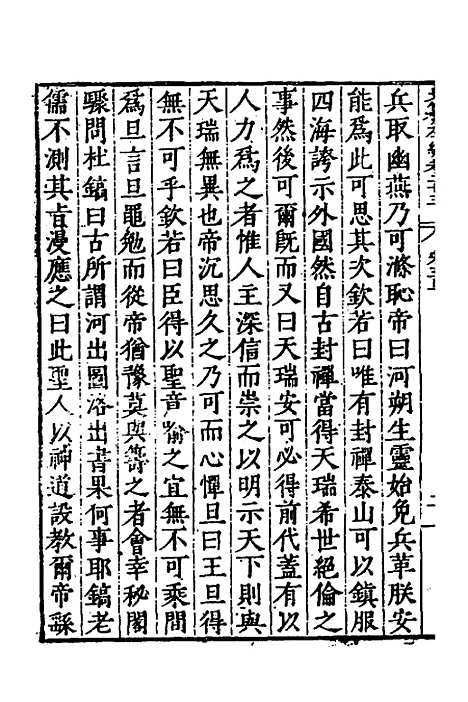 兵取幽燕乃可滌恥帝曰河朔生靈始免兵革朕安
能爲此可思其次欽若曰唯有封禪泰山可以鎮服
四海誇示外國然自古封禪當得天瑞希世絕倫之
事然後可爾既而又曰天瑞安可必得前代蓋有以
人力爲之者惟人主深信而崇之以明示天下則與
天瑞無異也帝沉思久之乃可而心憚旦曰王旦得
無不可乎欽若曰臣得以聖音喻之宜無不可乘間
爲旦言旦黽勉而從帝猶豫莫與籌之者會幸秘閣
驟問杜鎬曰古所謂河出圖洛出書果何事耶鎬老
儒不測其旨漫應之曰此聖人以神道設教爾帝繇